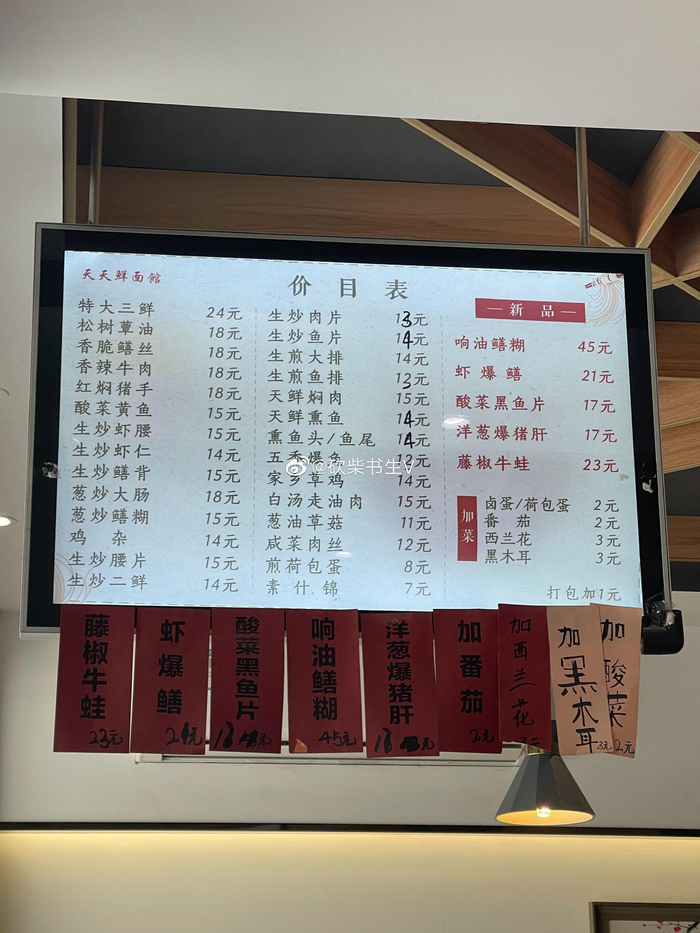 天天鲜面館
价目表
特大三鲜 24元
松树蕈油 18元
香脆鳝丝 18元
香辣牛肉 18元
红焖猪手 18元
酸菜黄鱼 15元
生炒虾腰 15元
生炒虾仁 14元
生炒鳝背 15元
葱炒大肠 18元
葱炒鳝糊 15元
鸡杂 14元
生炒腰片 15元
生炒二鲜 14元
生炒肉片 13元
生炒鱼片 14元
生煎大排 14元
生煎鱼排 12元
天鲜焖肉 15元
天鲜熏鱼 14元
熏鱼头/鱼尾 14元
五香爆鱼 12元
家乡草鸡 14元
白汤走油肉 15元
葱油草菇 11元
咸菜肉丝 12元
煎荷包蛋 8元
素什锦 7元
新品
响油鳝糊 45元
虾爆鳝 21元
酸菜黑鱼片 17元
洋葱爆猪肝 17元
藤椒牛蛙 23元
加菜
卤蛋/荷包蛋 2元
番茄 2元
西兰花 3元
黑木耳 3元
打包加1元
@砍柴书生V
藤椒牛蛙 23元
虾爆鳝 21元
酸菜黑鱼片 18元
响油鳝糊 45元
洋葱爆猪肝 18元
加番茄 2元
加西兰花 3元
加黑木耳 3元
加酸菜 2元